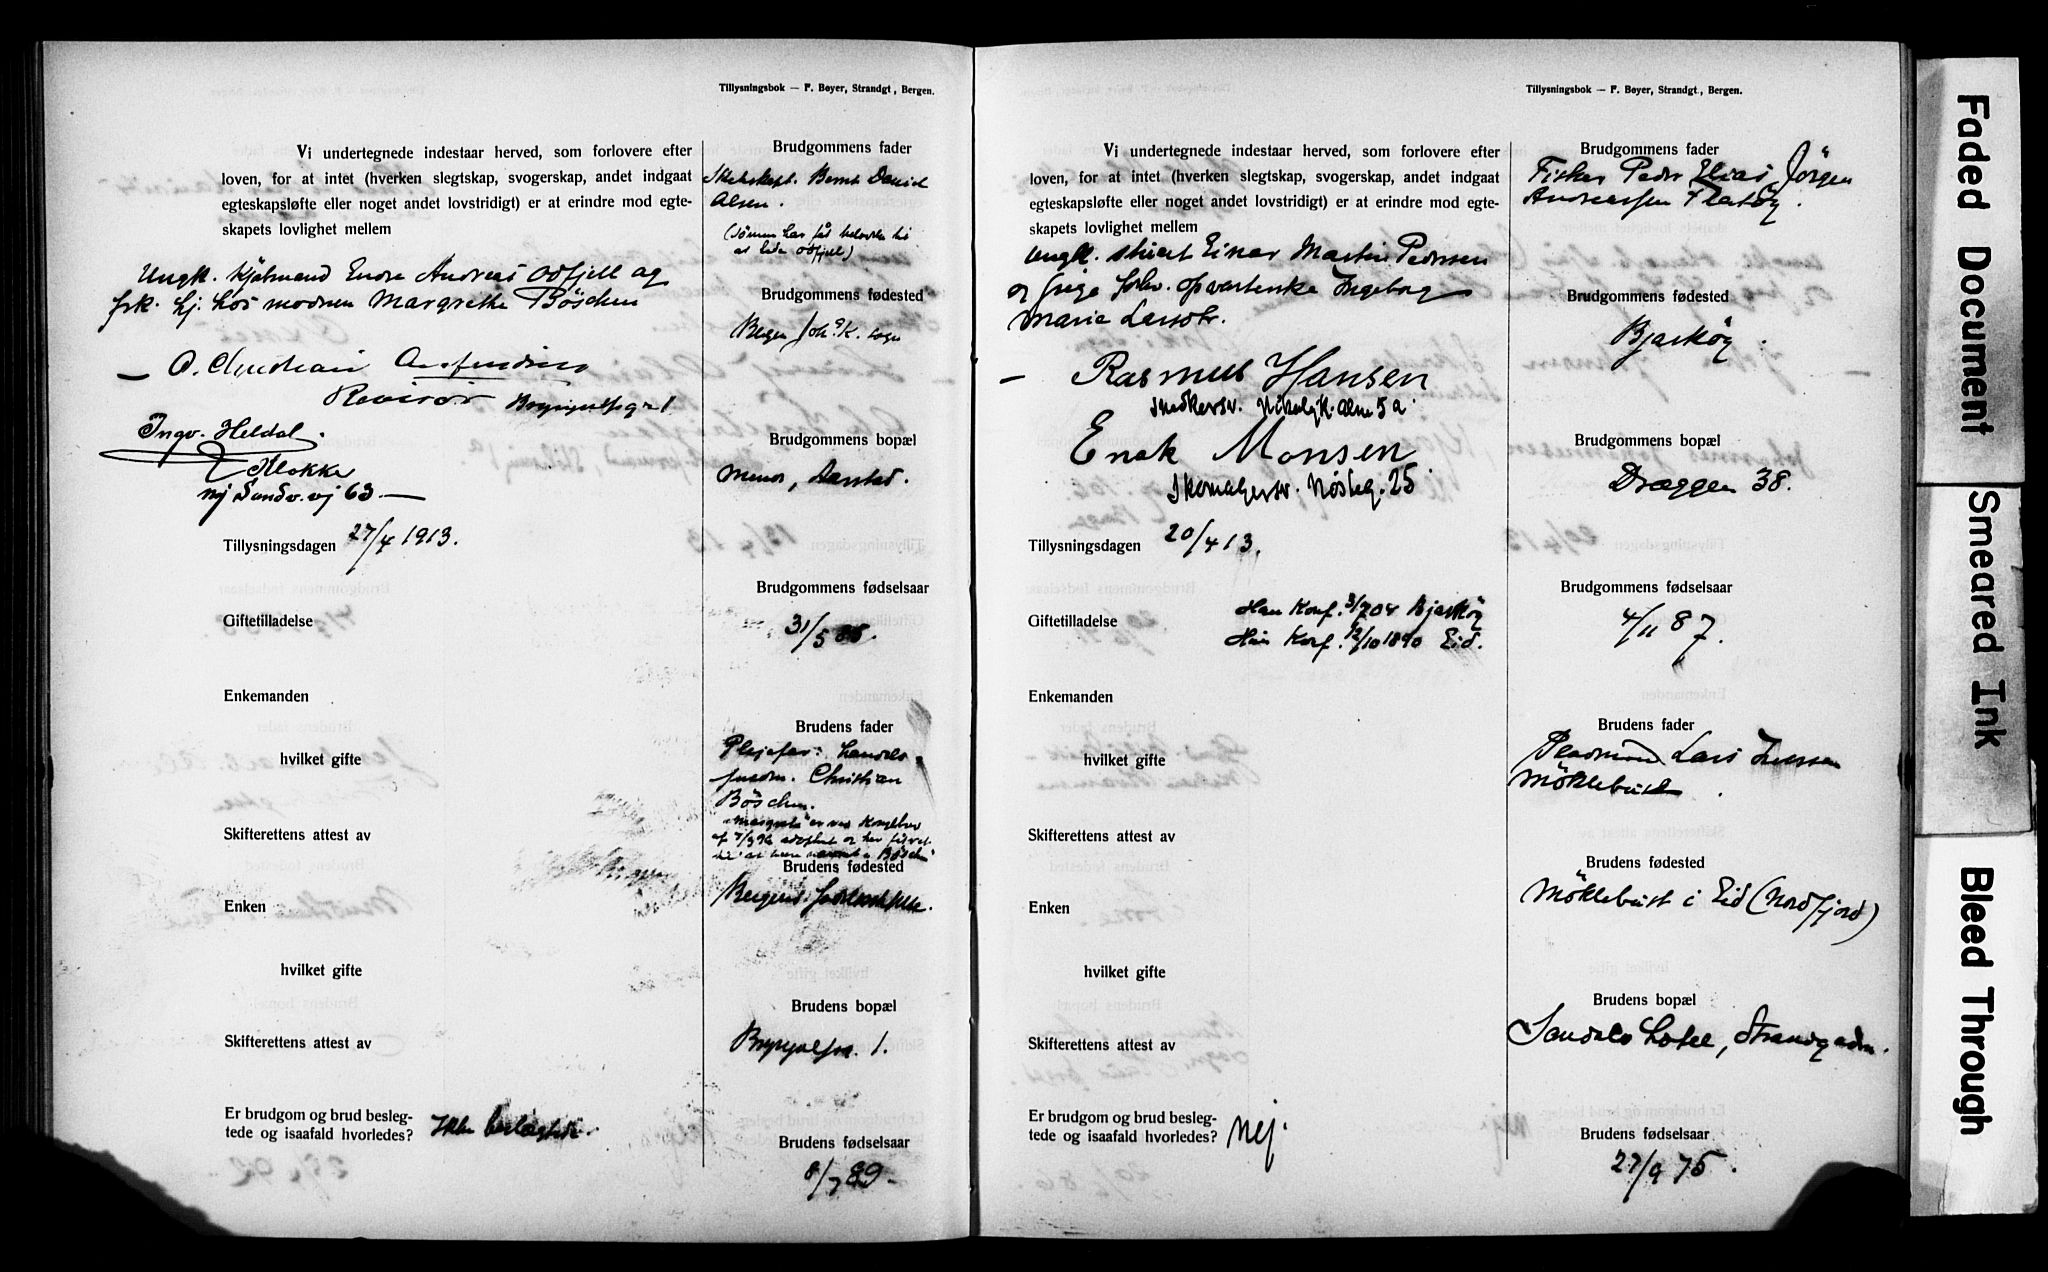 Tillysningsbok — F. Bøyer, Strandgt, Bergen.
Vi undertegnede indestaar herved, som forlovere efter
loven, for at intet (hverken slegtskap, svogerskap, andet indgaat
egteskapsløfte eller noget andet lovstridigt) er at erindre mod egte-
skapets lovlighet mellem
Ungk. Endre Andreas Odfjell og
frk. hj. hos modren Margrethe Böschen
Revisor
Ingv. Heldal.
Klokker
Ny Sandv. vj 63
Tillysningsdagen 27/4 1913.
Giftetilladelse
Enkemanden
hvilket gifte
Skifterettens attest av
Enken
hvilket gifte
Skifterettens attest av
Er brudgom og brud besleg-
tede og isaafald hvorledes? Ikke beslægtede.
Brudgommens fader
Bernt Daniel
Olsen.
Brudgommens fødested
Bergen Joh. K. sogn
Brudgommens bopæl
Aarstad.
Brudgommens fødselsaar
31/5
Brudens fader
Plejefar: Handels
Christian
Böschen.
Brudens fødested
Brudens bopæl
1.
Brudens fødselsaar
8/7 89.
Tillysningsbok — F. Bøyer, Strandgt, Bergen.
Vi undertegnede indestaar herved, som forlovere efter
loven, for at intet (hverken slegtskap, svogerskap, andet indgaat
egteskapsløfte eller noget andet lovstridigt) er at erindre mod egte-
skapets lovlighet mellem
ungk. stuert Einar Martin Pedersen
og pige forhv. opvarterske Ingeborg
Marie Larsdtr.
Rasmus Hansen
Snedkersv. Nikolajk. alm 5a.
Enok Monsen
Skomagersv. Nøsteg. 25
Tillysningsdagen 20/4 13.
Giftetilladelse Han Konf. 3/7 04 Bjarköy
Hun Konf. 12/10 1890 Eid.
Enkemanden
hvilket gifte
Skifterettens attest av
Enken
hvilket gifte
Skifterettens attest av
Er brudgom og brud besleg-
tede og isaafald hvorledes? Nej.
Brudgommens fader
Fisker Peder Elias Jörgen
Andreassen Flatöy.
Brudgommens fødested
Bjarköy
Brudgommens bopæl
Dræggen 38.
Brudgommens fødselsaar
4/11 87.
Brudens fader
Pladsmand Lars Iversen
Möklebust.
Brudens fødested
Möklebust i Eid (Nordfjord)
Brudens bopæl
Sandals hotel, Strandgaden.
Brudens fødselsaar
27/9 75.
Faded Document
Smeared Ink
Bleed Through